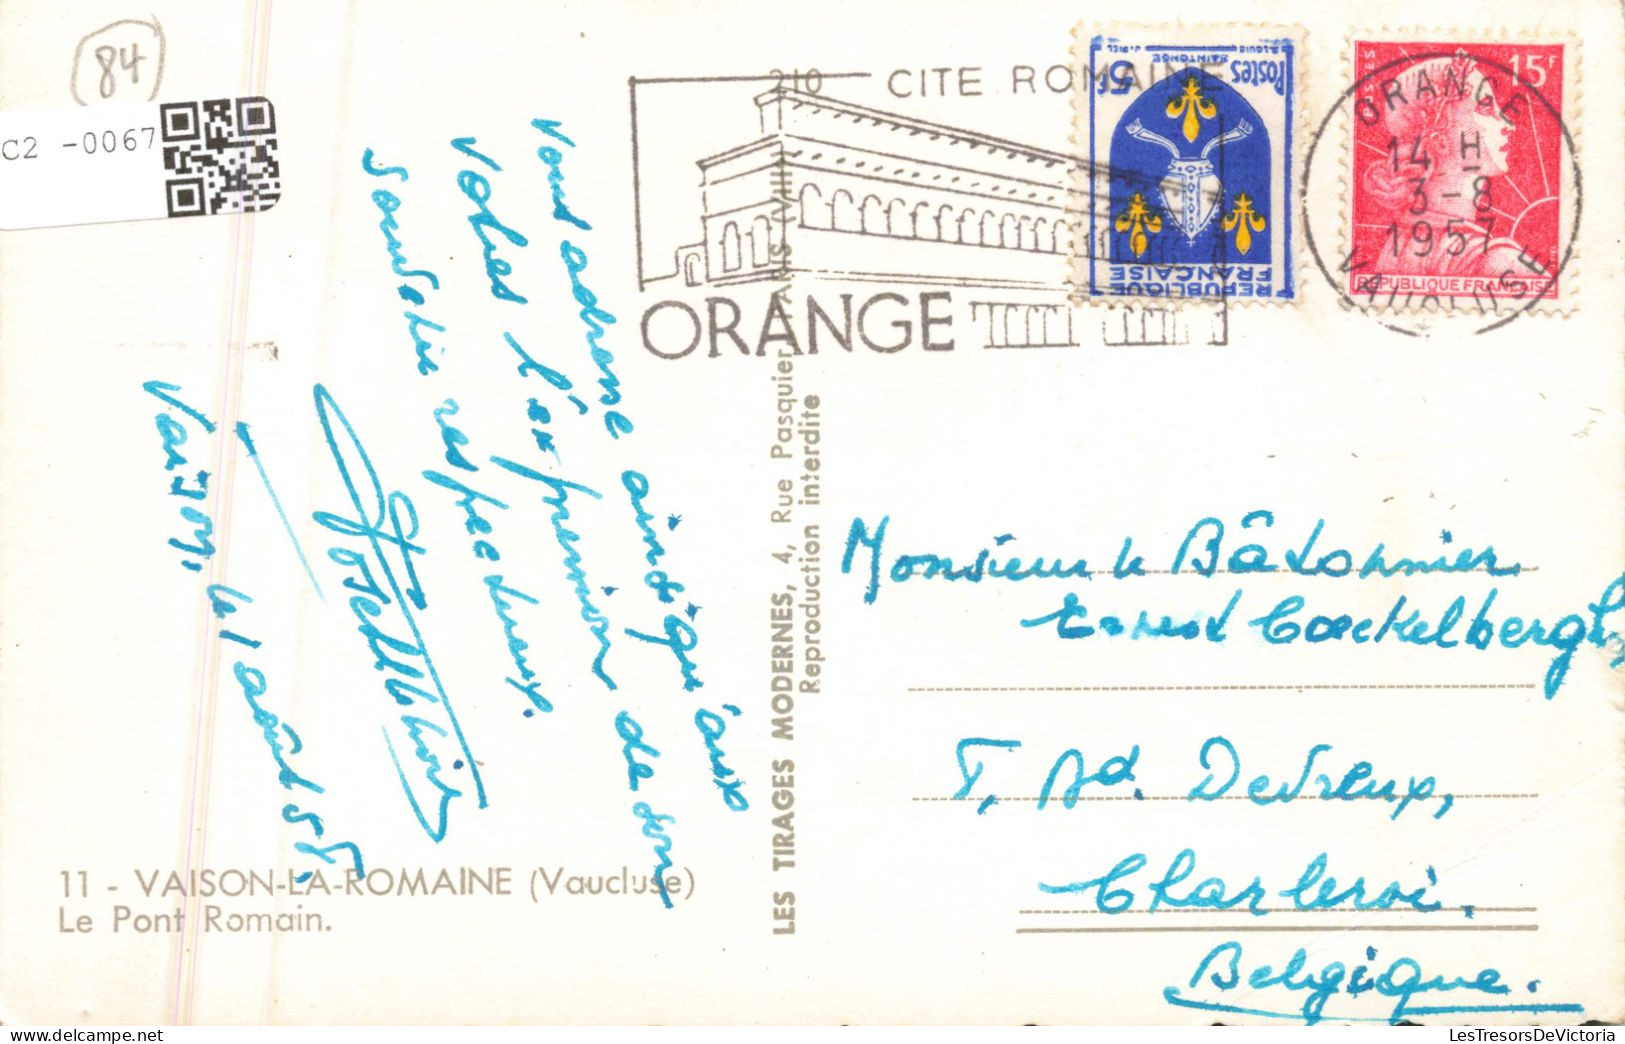 84
C2 -0067
210
CITE ROMAINE
ORANGE
Postes
5F
SAINTONGE
REPUBLIQUE
FRANÇAISE
POSTES
15F
REPUBLIQUE FRANÇAISE
ORANGE
14 H
3-8
1957
VAUCLUSE
Vous adresse ainsi qu'aux
Vôtres l'expression de son
souvenir respectueux.
Vaison, le 1 août 57,
11 - VAISON-LA-ROMAINE (Vaucluse)
Le Pont Romain.
LES TIRAGES MODERNES, 4, Rue Pasquier, PARIS (VIII
Reproduction interdite
Monsieur le Bâtonnier
Ernest Coeckelbergh,
Devreux,
Charleroi.
Belgique.
LesTresorsDeVictoria